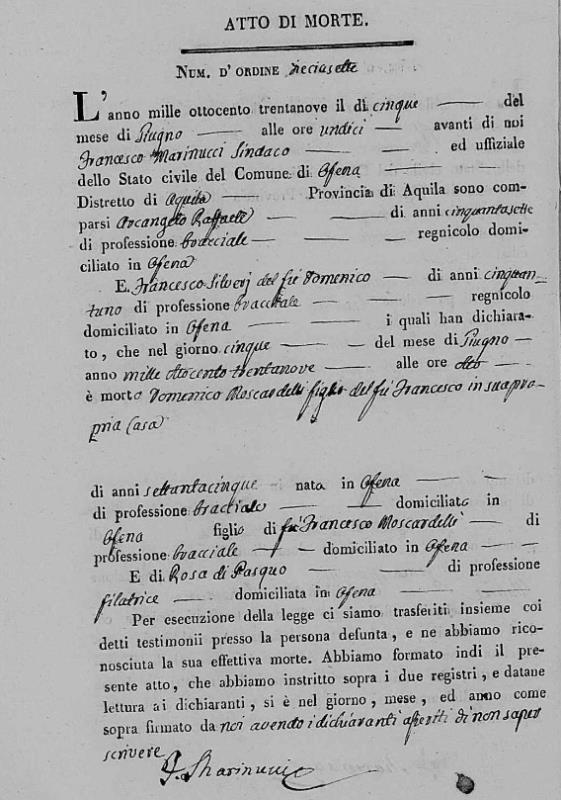 ATTO DI MORTE.
NUM. D' ORDINE Deciasette
L'anno mille ottocento trentanove il dì cinque del
mese di Giugno alle ore undici avanti di noi
Francesco Marinucci Sindaco ed uffiziale
dello Stato civile del Comune di Ofena
Distretto di Aquila Provincia di Aquila sono com-
parsi Arcangelo Raffaele di anni cinquantasette
di professione bracciale regnicolo domi-
ciliato in Ofena
E Francesco Silverj del fù Domenico di anni cinquan-
tuno di professione bracciale regnicolo
domiciliato in Ofena i quali han dichiara-
to, che nel giorno cinque del mese di Giugno
anno mille ottocento trentanove alle ore otto
è morto Domenico Moscardelli figlio del fù Francesco in sua pro-
pria Casa
di anni settantacinque nato in Ofena
di professione bracciale domiciliato in
Ofena figlio di fù Francesco Moscardelli di
professione bracciale domiciliato in Ofena
E di Rosa di Pasquo di professione
filatrice domiciliata in Ofena
Per esecuzione della legge ci siamo trasferiti insieme coi
detti testimonii presso la persona defunta, e ne abbiamo rico-
nosciuta la sua effettiva morte. Abbiamo formato indi il pre-
sente atto, che abbiamo instritto sopra i due registri, e datane
lettura ai dichiaranti, si è nel giorno, mese, ed anno come
sopra firmato da noi avendo i dichiaranti asseriti di non saper
scrivere
F. Marinucci